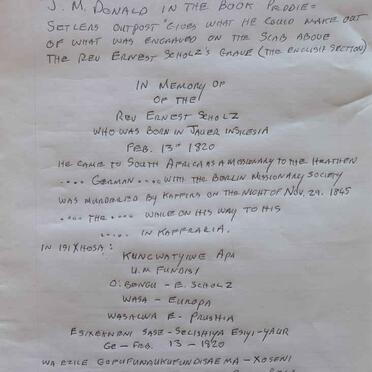 J. M. DONALD IN THE BOOK PEDDIE=
SETLERS OUTPOST "GIVES WHAT HE COULD MAKE OUT
OF WHAT WAS ENGRAVED ON THE SLAB ABOVE
THE REV ERNEST SCHOLZ'S GRAVE (THE ENGLISH SECTION)
IN MEMORY OF
OF THE
REV ERNEST SCHOLZ
WHO WAS BORN IN JAUER IN SILESIA
FEB. 13TH 1820
HE CAME TO SOUTH AFRICA AS A MISSIONARY TO THE HEATHEN
.... GERMAN .... WITH THE BERLIN MISSIONARY SOCIETY
WAS MURDERED BY KAFFIRS ON THE NIGHT OF NOV. 29. 1845
.... THE .... WHILE ON HIS WAY TO HIS
..... IN KAFFRARIA.
IN ISIXHOSA:
KUNCWATYIWE APA
U.M FUNDISI
O. BENGU - E. SCHOLZ
WASA - EUROPA
WASALWA E. PRUSHIA
SASE - SELISHIYA ESIYI - YAUR
GE - FEB. 13 - 1820